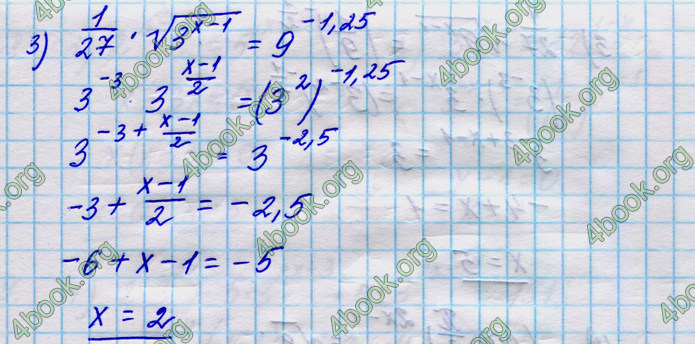 3) 1/27 · √3^(x-1) = 9^(-1,25)
3^(-3) · 3^((x-1)/2) = (3^2)^(-1,25)
3^(-3+(x-1)/2) = 3^(-2,5)
-3 + (x-1)/2 = -2,5
-6 + x - 1 = -5
x = 2
4book.org
4book.org
4book.org
4book.org
4book.org
4book.org
4book.org
4book.org
4book.org